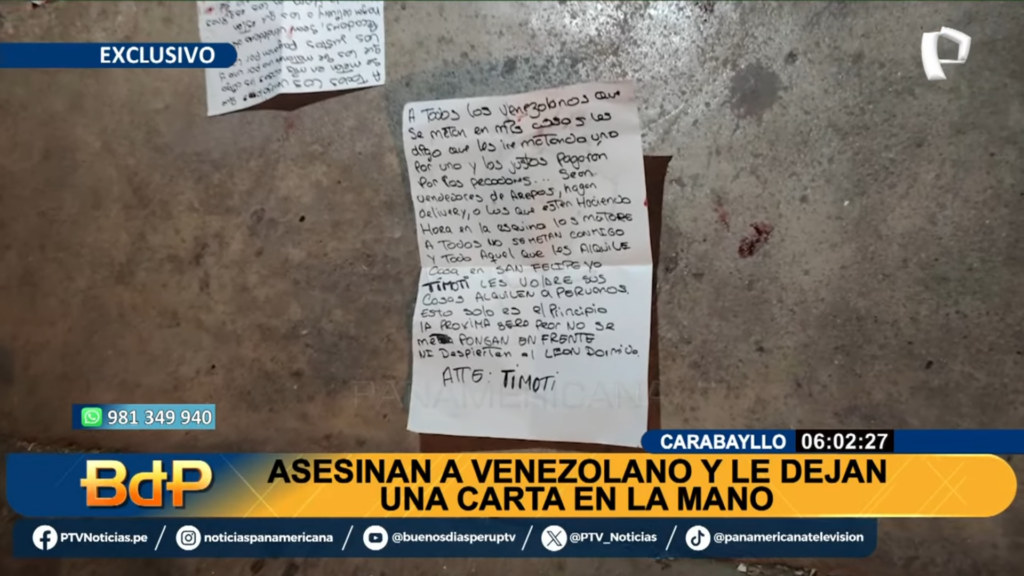 EXCLUSIVO
A Todos los venezolanos que
se meten en mis casas les
digo que los ire matando uno
por uno y los justos pagaran
por los pecadores... Sean
vendedores de Arepas, hagan
delivery, o los que esten Haciendo
Hora en la esquina los MATARE
A TODOS NO SE METAN CONMIGO
Y TODO Aquel que les ALQUILE
Casa en SAN FELIPE YO
TIMOTI LES VOLARE SUS
COSAS ALQUILEN A PERUANOS.
Esto solo es el Principio
LA PROXIMA SERA Peor NO SE
ME PONGAN EN FRENTE
NI Despierten al LEON Dormido
ATTE: TIMOTI
PANAMERICANA
981 349 940
CARABAYLLO 06:02:27
BdP
ASESINAN A VENEZOLANO Y LE DEJAN
UNA CARTA EN LA MANO
PTVNoticias.pe / noticiaspanamericana / @buenosdiasperuptv / @PTV_Noticias / @panamericanatelevision